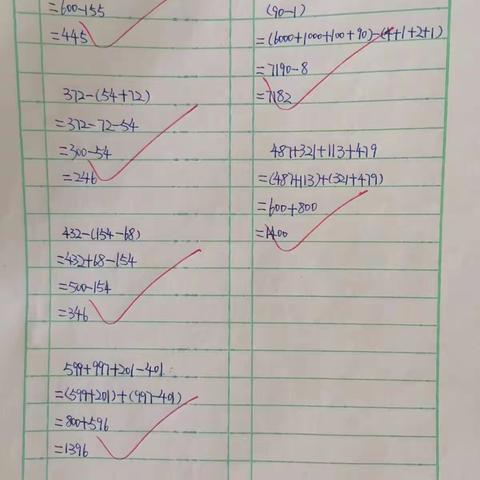 =600-155
=445
372-(54+72)
=372-72-54
=300-54
=246
432-(154-68)
=432+68-154
=500-154
=346
599+997+201-401
=(599+201)+(997-401)
=800+596
=1396
(90-1)
=(6000+1000+100+90)-(4+1+2+1)
=7190-8
=7182
487+321+113+479
=(487+113)+(321+479)
=600+800
=1400